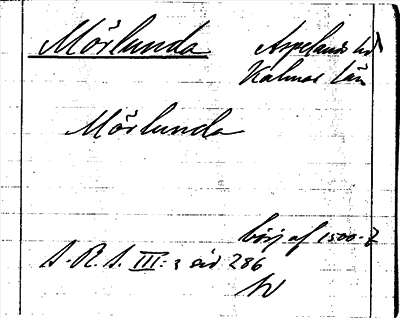 Mörlunda
Aspelands hd
Kalmar län
Mörlunda
börj af 1500-t
S.R.S. III:3 sid 286